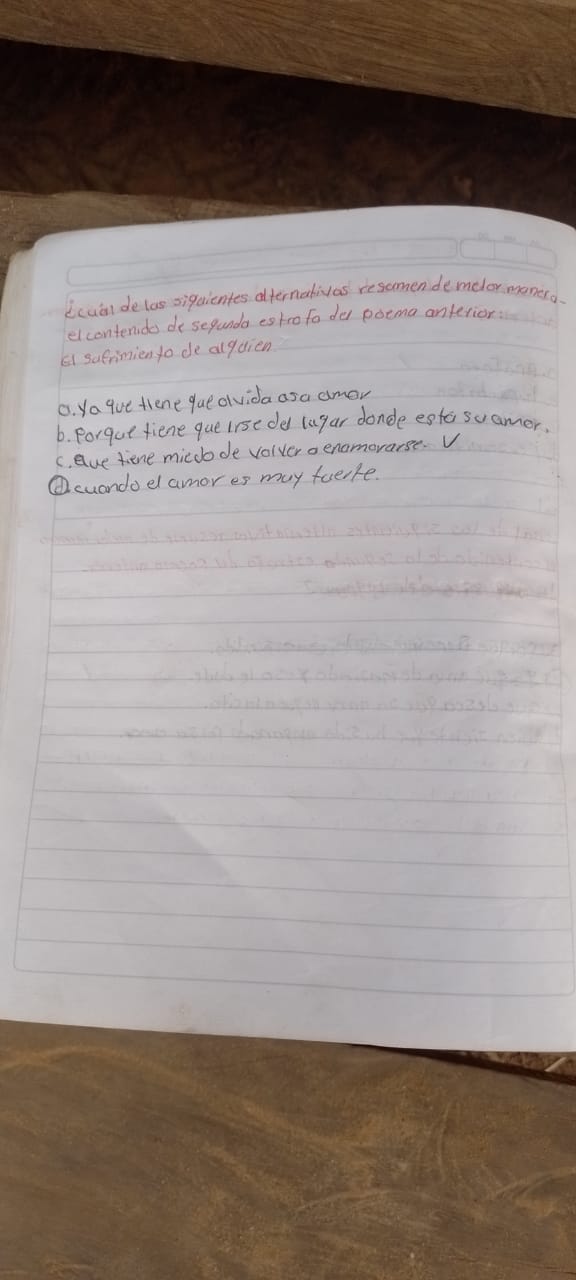 ¿cuál de las siguientes alternativas resumen de mejor manera-
el contenido de segunda estrofa del poema anterior:
El sufrimiento de alguien
a. Ya que tiene que olvida asa amor
b. Porque tiene que irse del lugar donde esta su amor.
c. Que tiene miedo de volver a enamorarse. V
d cuando el amor es muy fuerte.